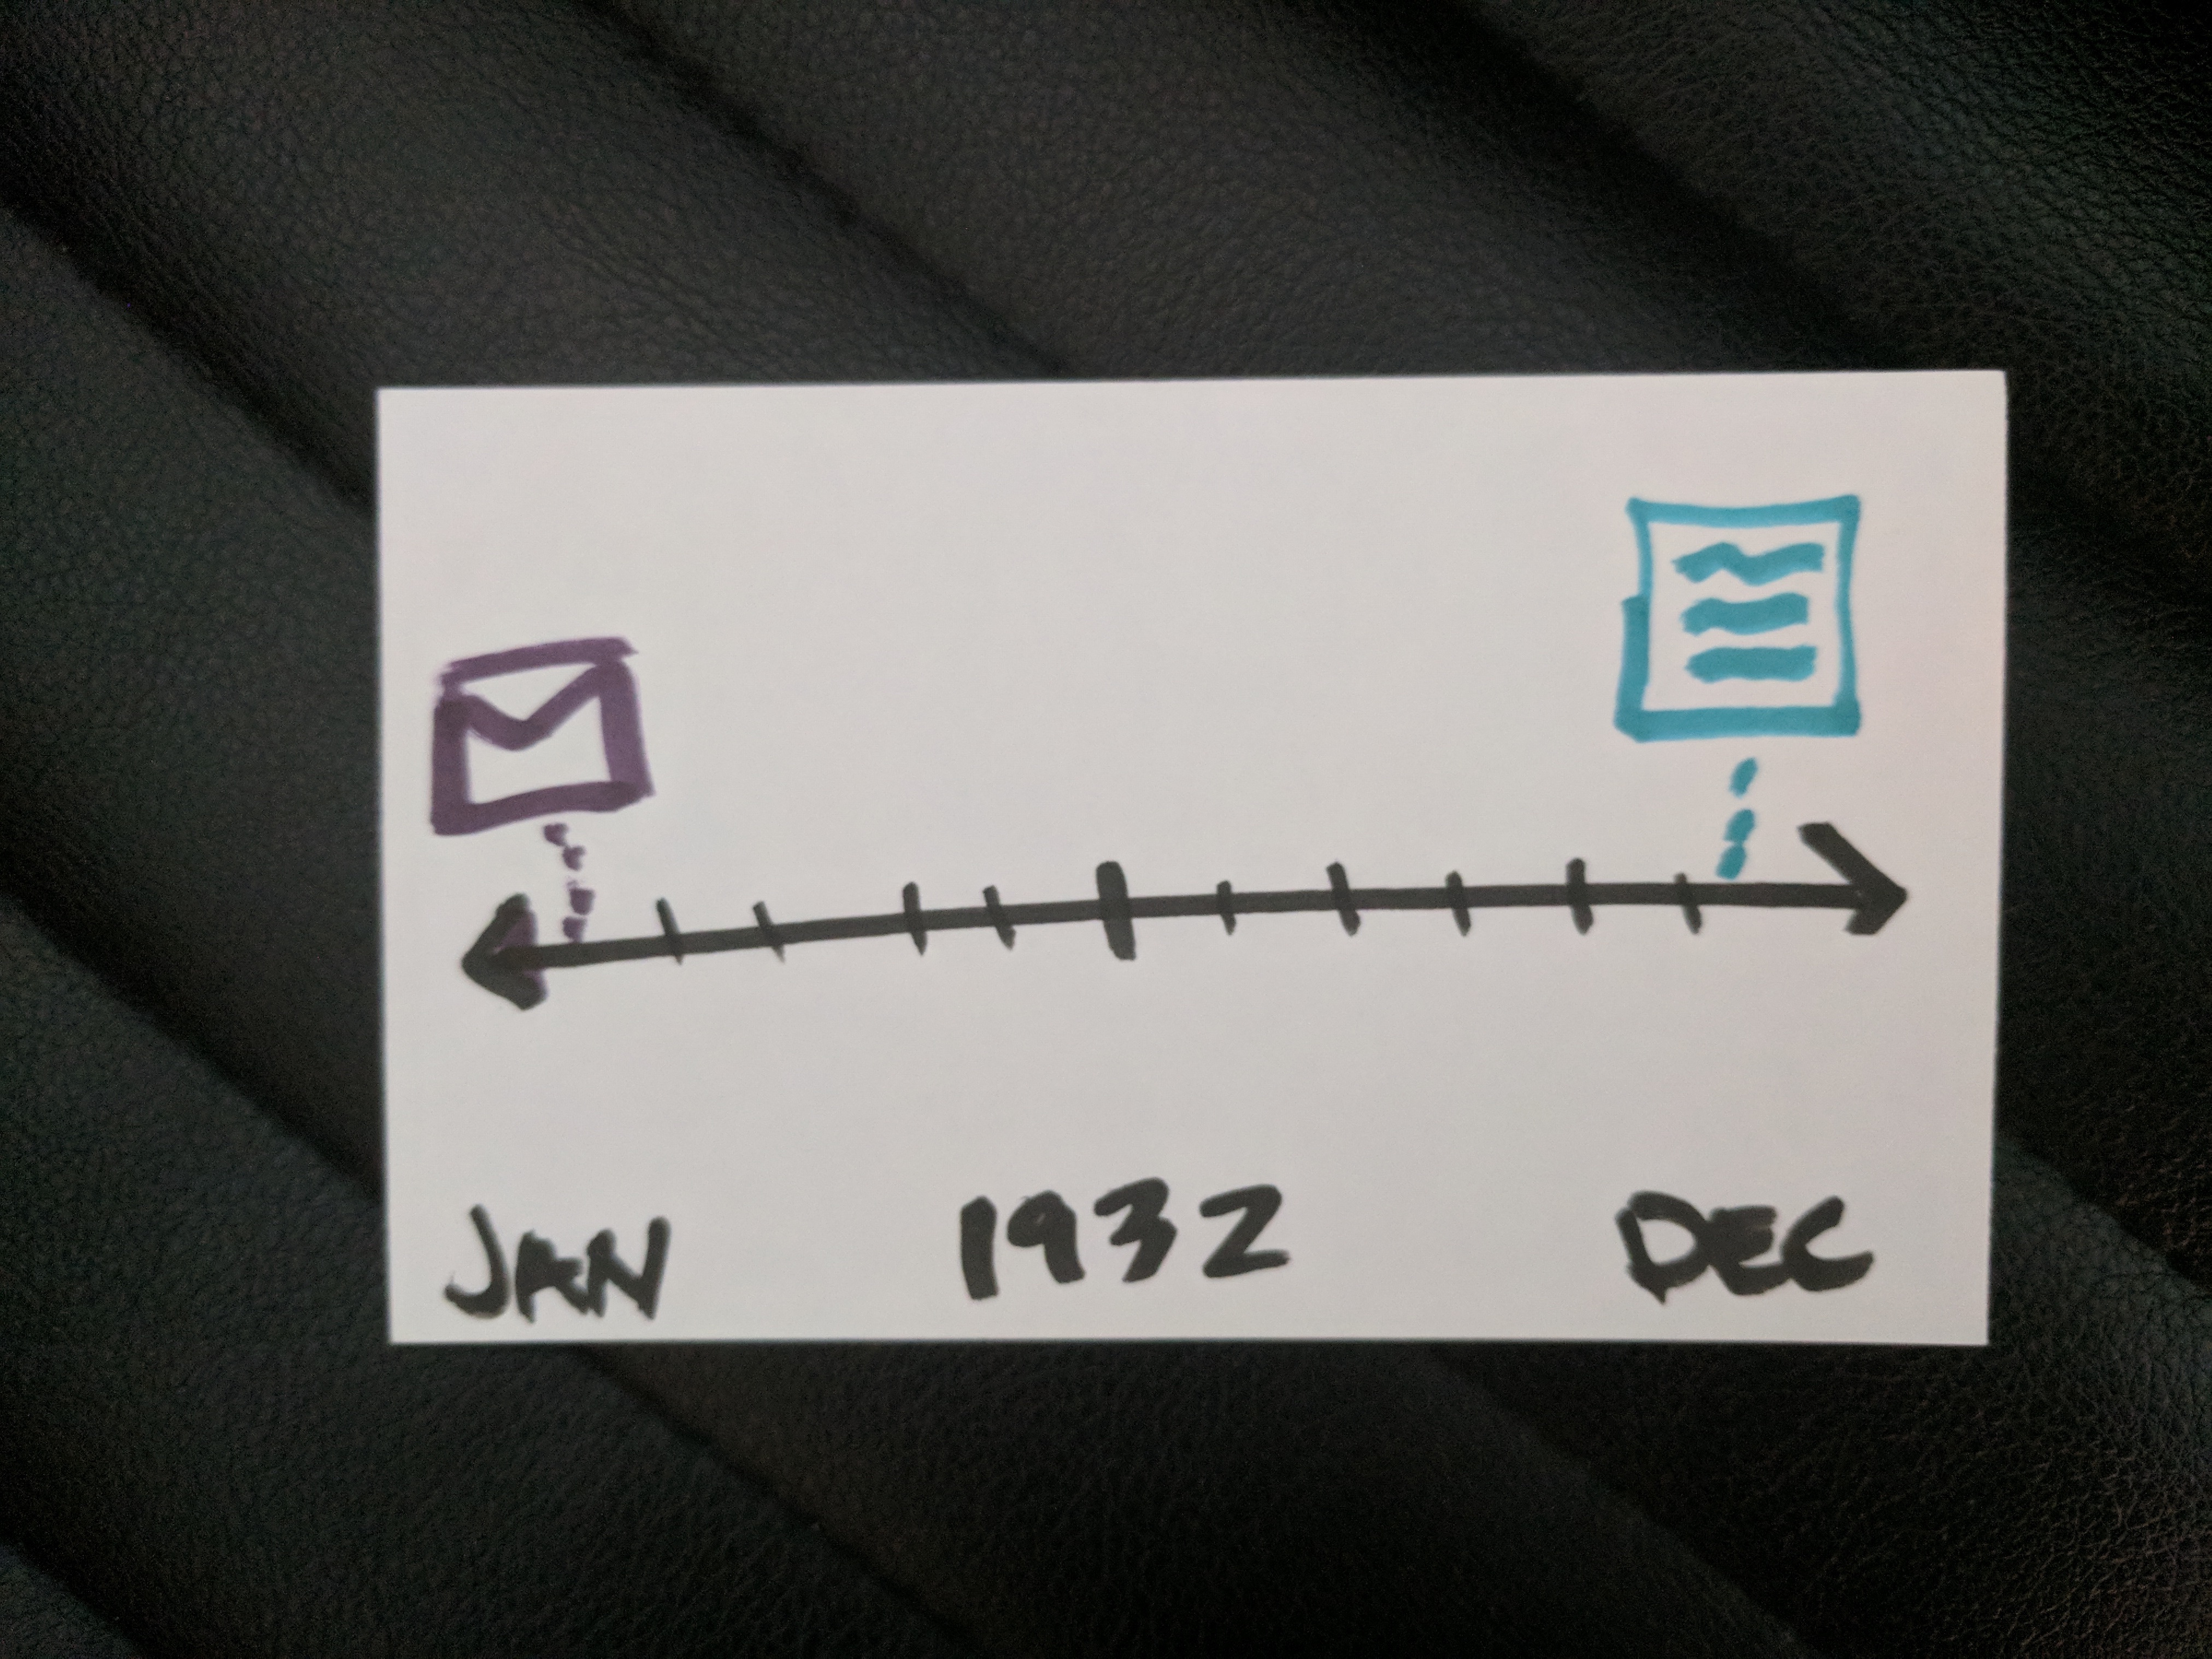 JAN 1932 DEC